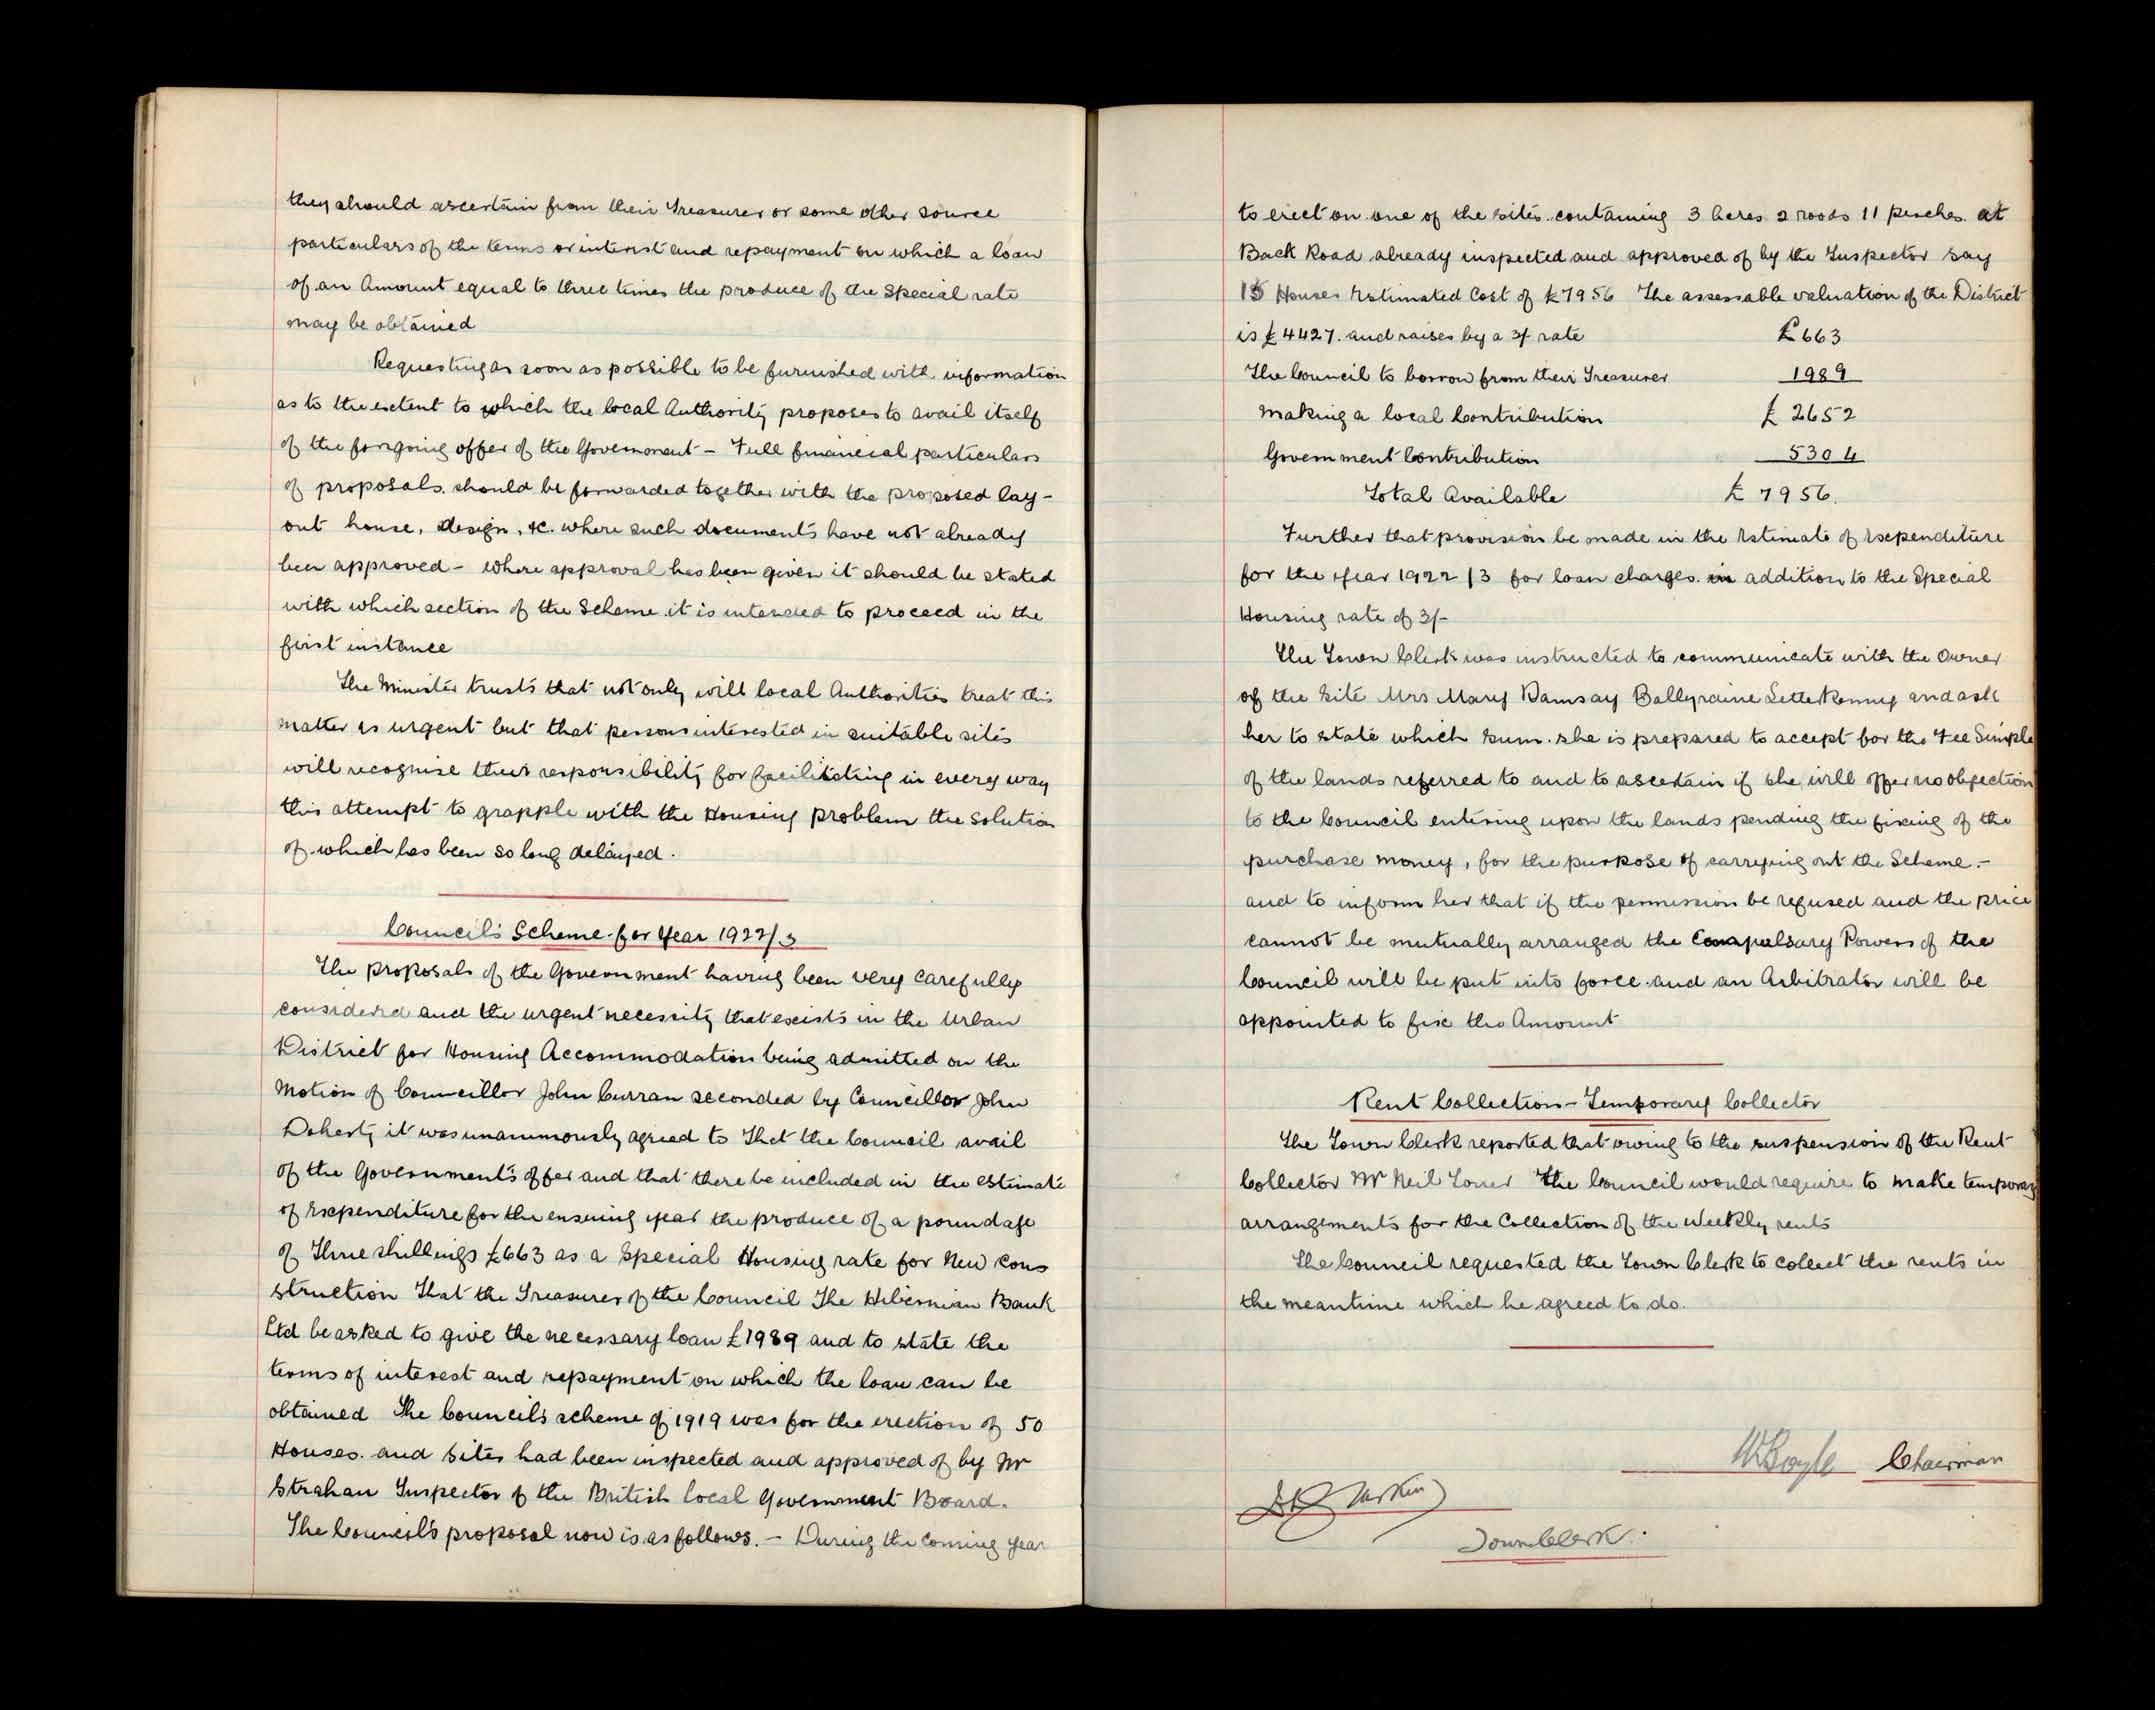 they should ascertain from their Treasurer or some other source
particulars of the terms or interest and repayment on which a loan
of an Amount equal to three times the produce of the Special rate
may be obtained
Requesting as soon as possible to be furnished with information
as to the extent to which the local Authority proposes to avail itself
of the forgoing offer of the Government - Full financial particulars
of proposals should be forwarded together with the proposed lay-
out house, design, &c. where such documents have not already
been approved - where approval has been given it should be stated
with which section of the Scheme it is intended to proceed in the
first instance
The Minister trusts that not only will local Authorities treat this
matter as urgent but that persons interested in suitable sites
will recognise their responsibility for facilitating in every way
this attempt to grapple with the Housing problem the solution
of which has been so long delayed.
Council's Scheme for Year 1922/3
The proposals of the Government having been very carefully
considered and the urgent necessity that exists in the Urban
District for Housing Accommodation being admitted on the
Motion of Councillor John Curran seconded by Councillor John
Doherty it was unanimously agreed to That the Council avail
of the Government's offer and that there be included in the estimate
of Expenditure for the ensuing year the produce of a poundage
of Three shillings £663 as a Special Housing rate for New Cons
struction That the Treasurer of the Council The Hibernian Bank
Ltd be asked to give the necessary loan £1989 and to state the
terms of interest and repayment on which the loan can be
obtained The Council's scheme of 1919 was for the erection of 50
Houses. and Sites had been inspected and approved of by Mr
Strahan Inspector of the British local Government Board.
The Council's proposal now is as follows. - During the coming year
to erect on one of the sites containing 3 Acres 2 roods 11 perches at
Back Road already inspected and approved of by the Inspector say
15 Houses Estimated Cost of £7956 The assessable valuation of the District
is £4427. and raises by a 3/- rate £663
The Council to borrow from their Treasurer 1989
Making a local Contribution £2652
Government Contribution 5304
Total Available £7956.
Further that provision be made in the Estimate of Expenditure
for the year 1922/3 for loan charges in addition to the Special
Housing rate of 3/-
The Town Clerk was instructed to communicate with the Owner
of the Site Mrs Mary Ramsay Ballyraine Letterkenny and ask
her to state which sum she is prepared to accept for the Fee Simple
of the lands referred to and to ascertain if she will offer no objection
to the Council entering upon the lands pending the fixing of the
purchase money, for the purpose of carrying out the Scheme. -
and to inform her that if the permission be refused and the price
cannot be mutually arranged the Compulsary Powers of the
Council will be put into force and an Arbitrator will be
appointed to fix the Amount
Rent Collection - Temporary Collector
The Town Clerk reported that owing to the suspension of the Rent
Collector Mr Neil Toner The Council would require to make temporary
arrangements for the Collection of the Weekly rents
The Council requested the Town Clerk to collect the rents in
the meantime which he agreed to do.
Boyle Chairman
Larkin
Town Clerk.